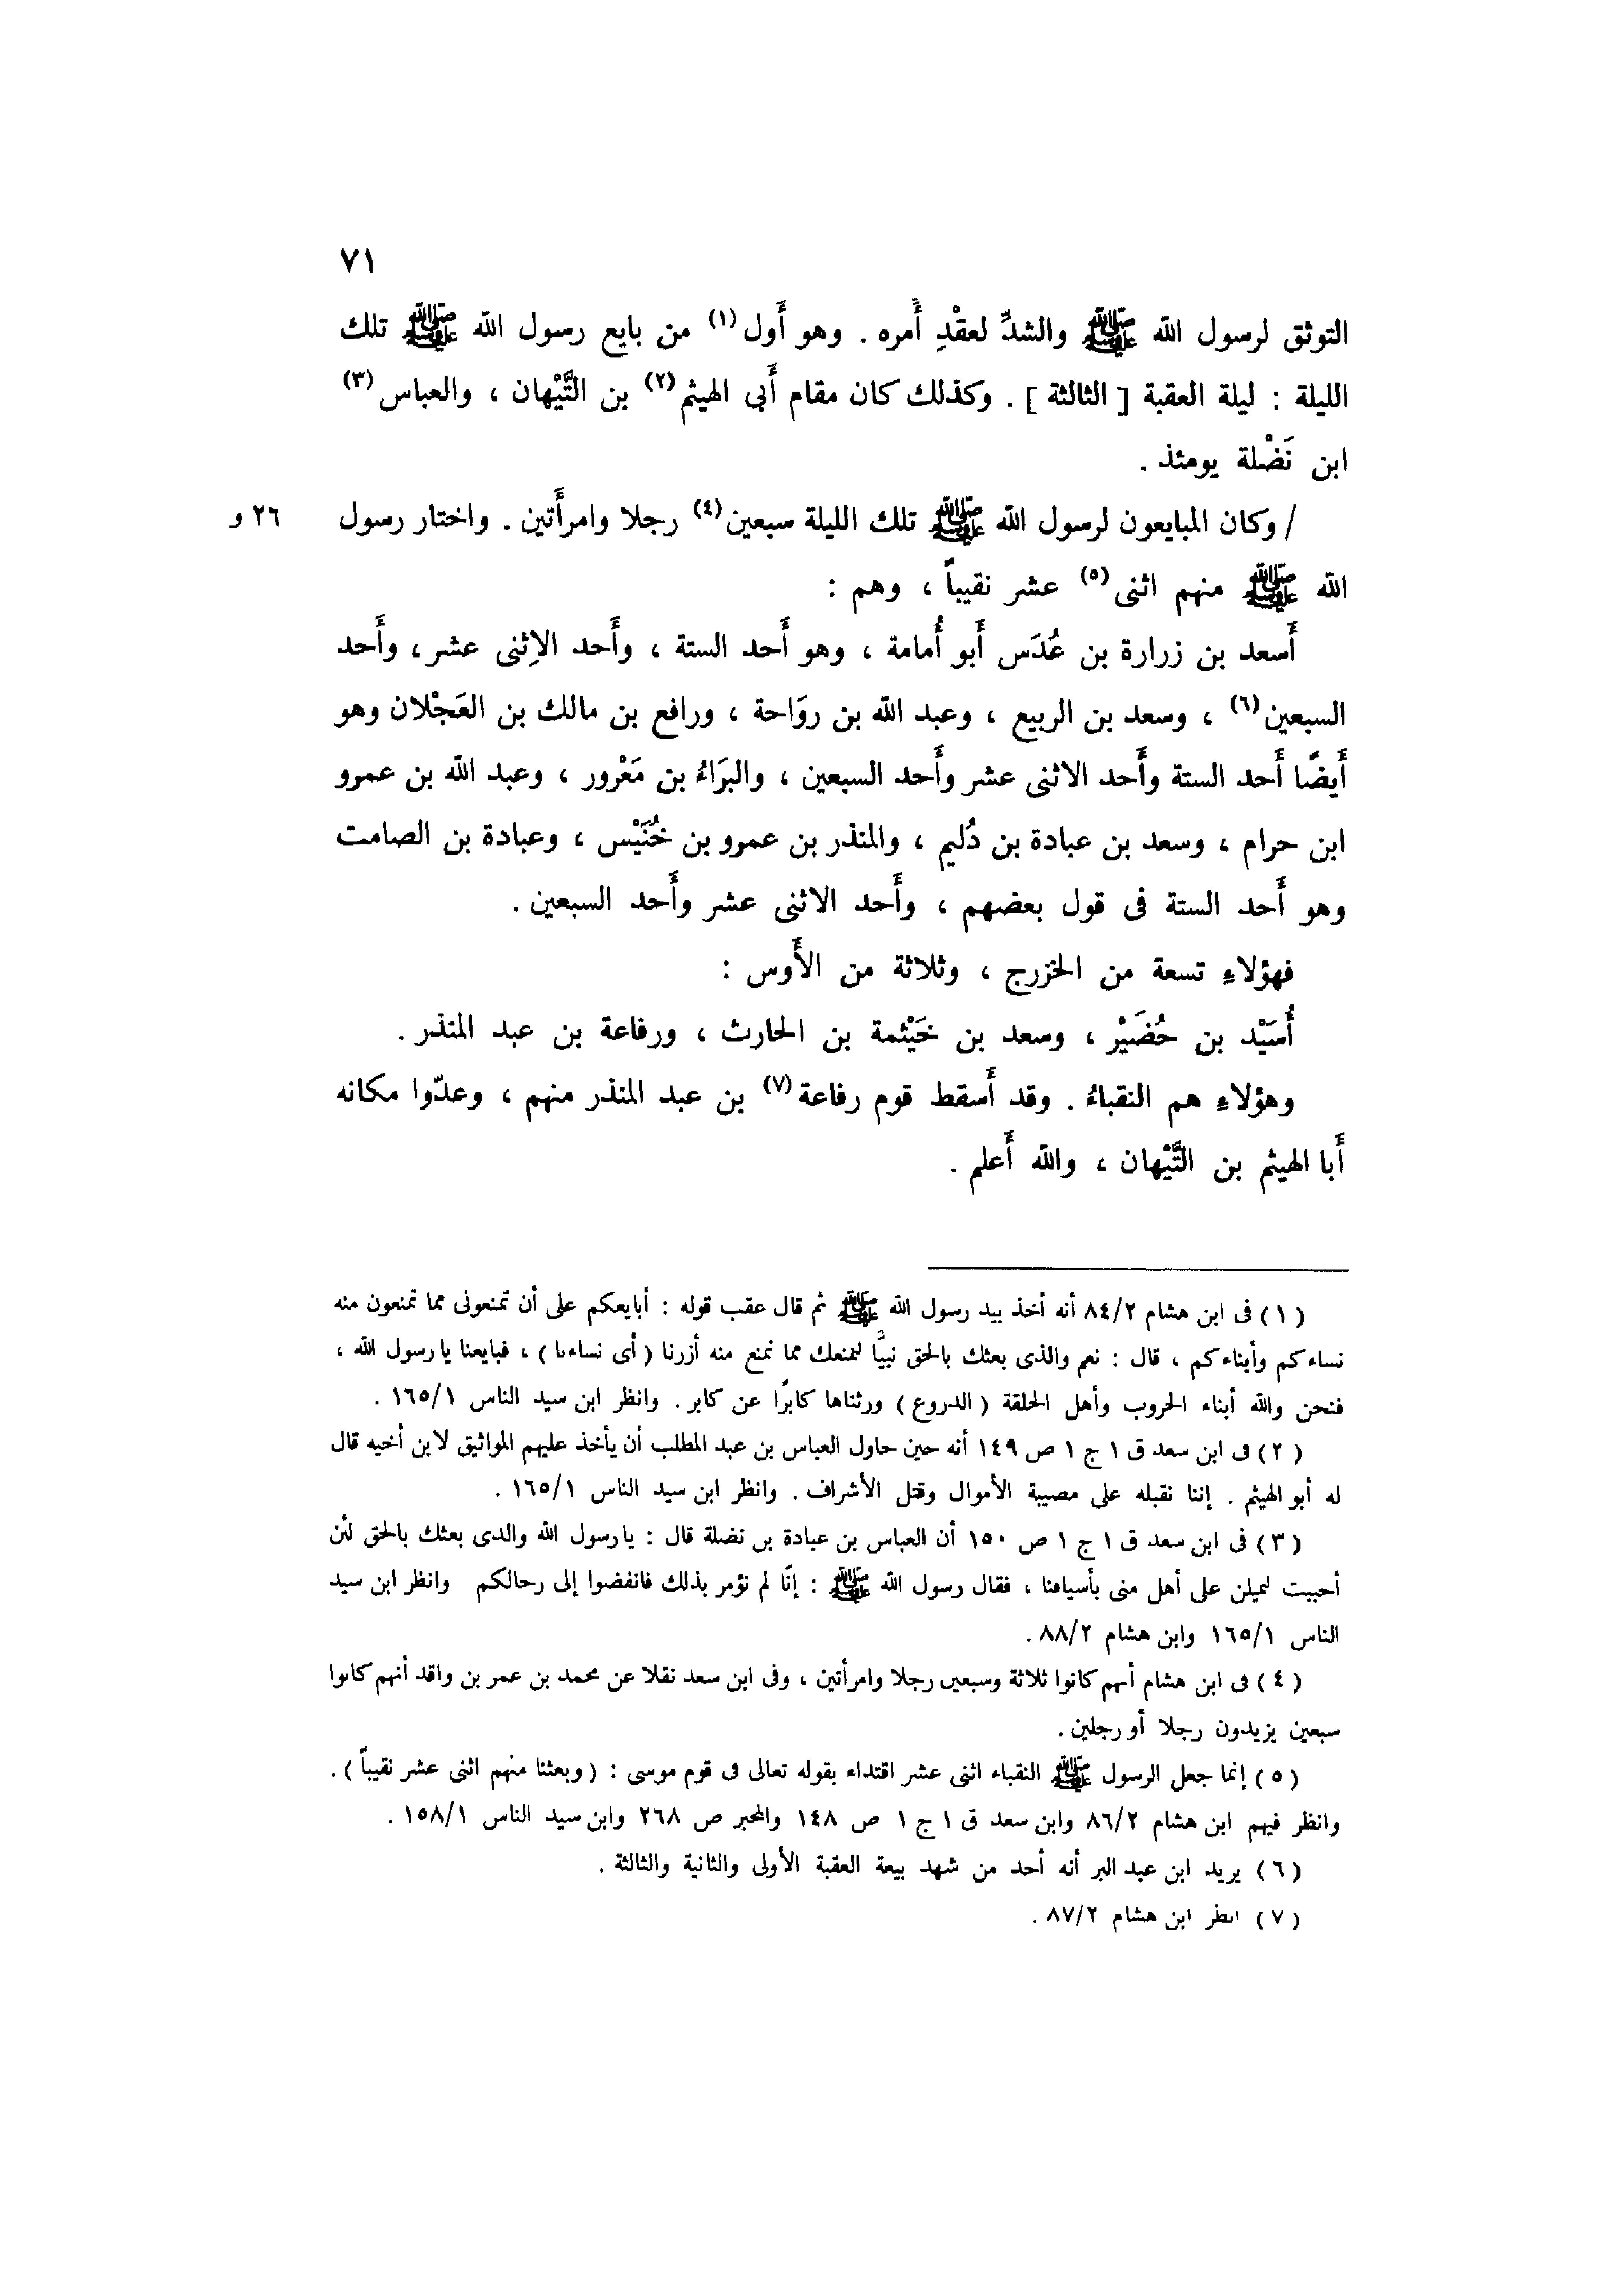 ٧١
التوثق لرسول الله ﷺ والشدِّ لعقْدِ أَمره . وهو أَول(١) من بايع رسول الله ﷺ تلك
الليلة : ليلة العقبة [ الثالثة ] . وكذلك كان مقام أَبى الهيثم(٢) بن التَّيْهان ، والعباس(٣)
ابن نَضْلة يومئذ .
/ وكان المبايعون لرسول الله ﷺ تلك الليلة سبعين(٤) رجلا وامرأَتين . واختار رسول ٢٦ و
الله ﷺ منهم اثنى(٥) عشر نقيباً ، وهم :
أَسعد بن زرارة بن عُدَس أَبو أُمامة ، وهو أَحد الستة ، وأَحد الاِثنى عشر ، وأَحد
السبعين(٦) ، وسعد بن الربيع ، وعبد الله بن روَاحة ، ورافع بن مالك بن العَجْلان وهو
أَيضًا أَحد الستة وأَحد الاثنى عشر وأَحد السبعين ، والبرَاءُ بن مَعْرور ، وعبد الله بن عمرو
ابن حرام ، وسعد بن عبادة بن دُليم ، والمنذر بن عمرو بن خُنَيْس ، وعبادة بن الصامت
وهو أَحد الستة فى قول بعضهم ، وأَحد الاثنى عشر وأَحد السبعين .
فهؤلاءِ تسعة من الخزرج ، وثلاثة من الأَوس :
أُسَيْد بن حُضَيْر ، وسعد بن خَيْثمة بن الحارث ، ورفاعة بن عبد المنذر .
وهؤلاءِ هم النقباءُ . وقد أَسقط قوم رفاعة(٧) بن عبد المنذر منهم ، وعدّوا مكانه
أَبا الهيثم بن التَّيْهان ، والله أَعلم .
( ١ ) فى ابن هشام ٨٤/٢ أنه أخذ بيد رسول الله ﷺ ثم قال عقب قوله : أبايعكم على أن تمنعونى مما تمنعون منه
نساءكم وأبناءكم ، قال : نعم والذى بعثك بالحق نبيًّا لنمنعك مما نمنع منه أزرنا ( أى نساءنا ) ، فبايعنا يا رسول الله ،
فنحن والله أبناء الحروب وأهل الحلقة ( الدروع ) ورثناها كابرًا عن كابر . وانظر ابن سيد الناس ١٦٥/١ .
( ٢ ) فى ابن سعد ق ١ ج ١ ص ١٤٩ أنه حين حاول العباس بن عبد المطلب أن يأخذ عليهم المواثيق لابن أخيه قال
له أبو الهيثم . إننا نقبله على مصيبة الأموال وقتل الأشراف . وانظر ابن سيد الناس ١٦٥/١ .
( ٣ ) فى ابن سعد ق ١ ج ١ ص ١٥٠ أن العباس بن عبادة بن نضلة قال : يا رسول الله والذى بعثك بالحق لئن
أحببت لنميلن على أهل منى بأسيافنا ، فقال رسول الله ﷺ : إنّا لم نؤمر بذلك فانفضوا إلى رحالكم وانظر ابن سيد
الناس ١٦٥/١ وابن هشام ٨٨/٢ .
( ٤ ) فى ابن هشام أنهم كانوا ثلاثة وسبعين رجلا وامرأتين ، وفى ابن سعد نقلا عن محمد بن عمر بن واقد أنهم كانوا
سبعين يزيدون رجلا أو رجلين .
( ٥ ) إنما جعل الرسول ﷺ النقباء اثنى عشر اقتداء بقوله تعالى فى قوم موسى : ( وبعثنا منهم اثنى عشر نقيباً ) .
وانظر فيهم ابن هشام ٨٦/٢ وابن سعد ق ١ ج ١ ص ١٤٨ والمحبر ص ٢٦٨ وابن سيد الناس ١٥٨/١ .
( ٦ ) يريد ابن عبد البر أنه أحد من شهد بيعة العقبة الأولى والثانية والثالثة .
( ٧ ) انظر ابن هشام ٨٧/٢ .